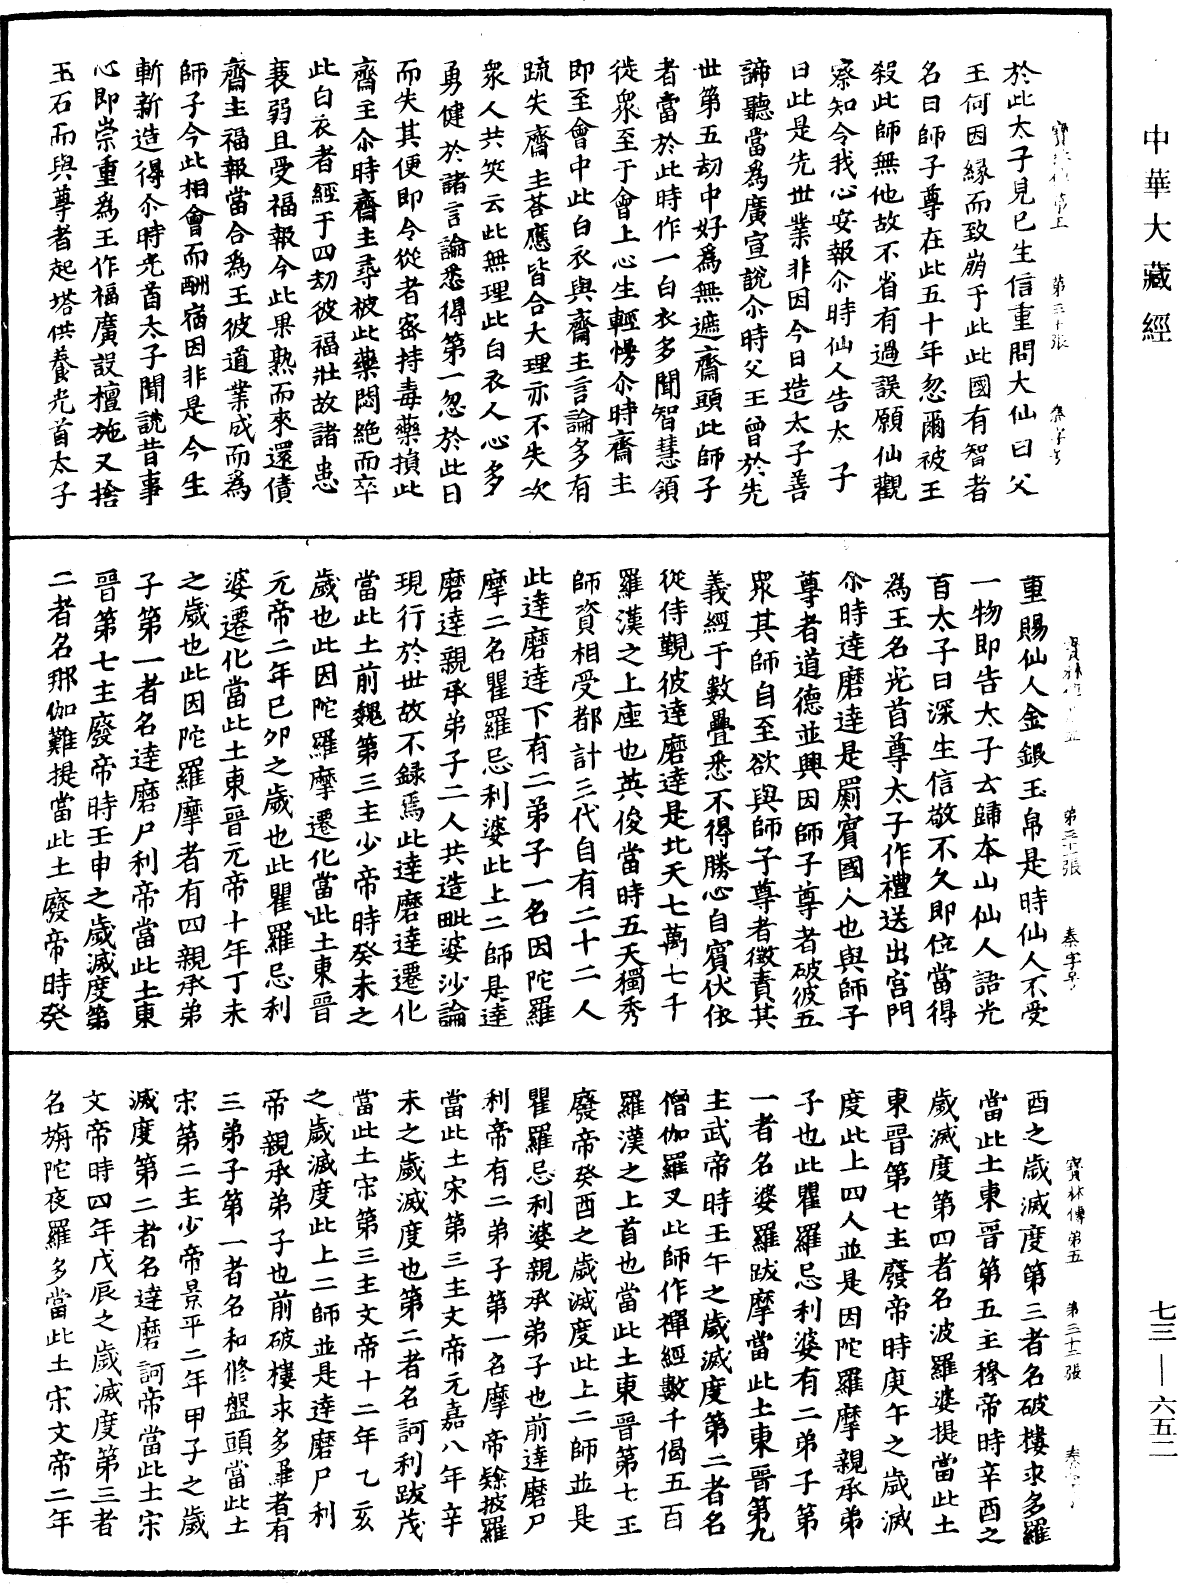 中華大藏經
於此太子見已生信重問大仙曰父
王何因緣而致崩于此此國有智者
名曰師子尊在此五十年忽爾被王
殺此師無他故不省有過誤願仙觀
察知令我心安報尒時仙人告太子
曰此是先世業非因今日造太子善
諦聽當為廣宣說尒時父王曾於先
世第五劫中好為無遮齋頭此師子
者當於此時作一白衣多聞智慧領
徒眾至于會上心生輕慢尒時齋主
即至會中此白衣與齋主言論多有
疏失齋主荅應皆合大理亦不失次
眾人共笑云此無理此白衣人心多
勇健於諸言論悉得第一忽於此日
而失其便即令從者密持毒藥損此
齋主尒時齋主尋被此藥悶絕而卒
此白衣者經于四劫彼福壯故諸患
衰弱且受福報今此果熟而來還債
齋主福報當合為王彼道業成而為
師子今此相會而酬宿因非是今生
斬新造得尒時光首太子聞說昔事
心即崇重為王作福廣設檀施又捨
玉石而與尊者起塔供養光首太子
第三十張
重賜仙人金銀玉帛是時仙人不受
一物即告太子去歸本山仙人語光
首太子曰深生信敬不久即位當得
為王名光首尊太子作禮送出宮門
尒時達磨達是罽賓國人也與師子
尊者道德並興因師子尊者破彼五
眾其師自至欲與師子尊者徵責其
義經于數疊悉不得勝心自賓伏依
從侍覲彼達磨達是北天七萬七千
羅漢之上座也英俊當時五天獨秀
師資相受都計三代自有二十二人
此達磨達下有二弟子一名因陀羅
摩二名瞿羅忌利婆此上二師是達
磨達親承弟子二人共造毗婆沙論
現行於世故不錄焉此達磨達遷化
當此土前魏第三主少帝時癸未之
歲也此因陀羅摩遷化當此土東晉
元帝二年己夘之歲也此瞿羅忌利
婆遷化當此土東晉元帝十年丁未
之歲也此因陀羅摩者有四親承弟
子第一者名達磨尸利帝當此土東
晉第七主廢帝時壬申之歲滅度第
二者名那伽難提當此土廢帝時癸
第三十一張
酉之歲滅度第三者名破樓求多羅
當此土東晉第五主穆帝時辛酉之
歲滅度第四者名波羅婆提當此土
東晉第七主廢帝時庚午之歲滅
度此上四人並是因陀羅摩親承弟
子也此瞿羅忌利婆有二弟子第
一者名婆羅跋摩當此土東晉第九
主武帝時壬午之歲滅度第二者名
僧伽羅叉此師作禪經數千偈五百
羅漢之上首也當此土東晉第七王
廢帝癸酉之歲滅度此上二師並是
瞿羅忌利婆親承弟子也前達磨尸
利帝有二弟子第一名摩帝隸披羅
當此土宋第三主文帝元嘉八年辛
未之歲滅度也第二者名訶利跋茂
當此土宋第三主文帝十二年乙亥
之歲滅度此上二師並是達磨尸利
帝親承弟子也前破樓求多羅者有
三弟子第一者名和修盤頭當此土
宋第二主少帝景平二年甲子之歲
滅度第二者名達磨訶帝當此土宋
文帝時四年戊辰之歲滅度第三者
名旃陀夜羅多當此土宋文帝二年
寶林傳第五 第三十二張
七三—六五二